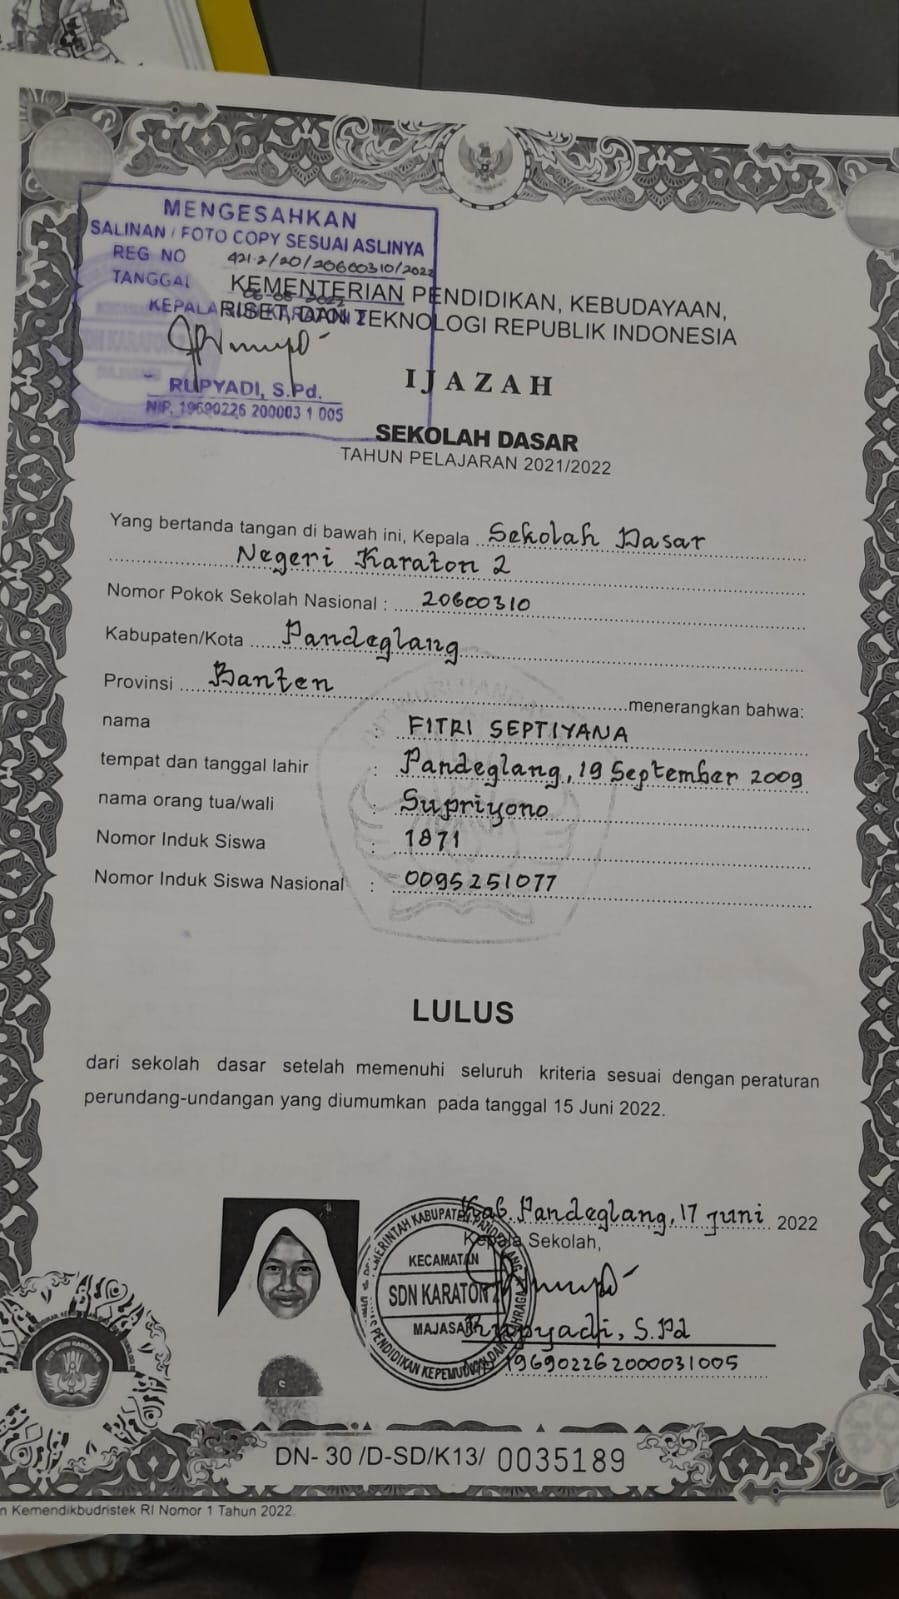 MENGESAHKAN
SALINAN / FOTO COPY SESUAI ASLINYA
REG NO 421.2/20/20600310/2022
TANGGAL
KEPALA
RUPYADI, S.Pd.
NIP. 19690226 200003 1 005
KEMENTERIAN PENDIDIKAN, KEBUDAYAAN,
RISET, DAN TEKNOLOGI REPUBLIK INDONESIA
IJAZAH
SEKOLAH DASAR
TAHUN PELAJARAN 2021/2022
Yang bertanda tangan di bawah ini, Kepala Sekolah Dasar
Negeri Karaton 2
Nomor Pokok Sekolah Nasional : 20600310
Kabupaten/Kota Pandeglang
Provinsi Banten menerangkan bahwa:
nama : FITRI SEPTIYANA
tempat dan tanggal lahir : Pandeglang, 19 September 2009
nama orang tua/wali : Supriyono
Nomor Induk Siswa : 1871
Nomor Induk Siswa Nasional : 0095251077
LULUS
dari sekolah dasar setelah memenuhi seluruh kriteria sesuai dengan peraturan
perundang-undangan yang diumumkan pada tanggal 15 Juni 2022.
Kab. Pandeglang, 17 Juni 2022
Kepala Sekolah,
KECAMATAN
SDN KARATON 2
MAJASARI
Rupyadi, S.Pd
196902262000031005
DN- 30 /D-SD/K13/ 0035189
n Kemendikbudristek RI Nomor 1 Tahun 2022.